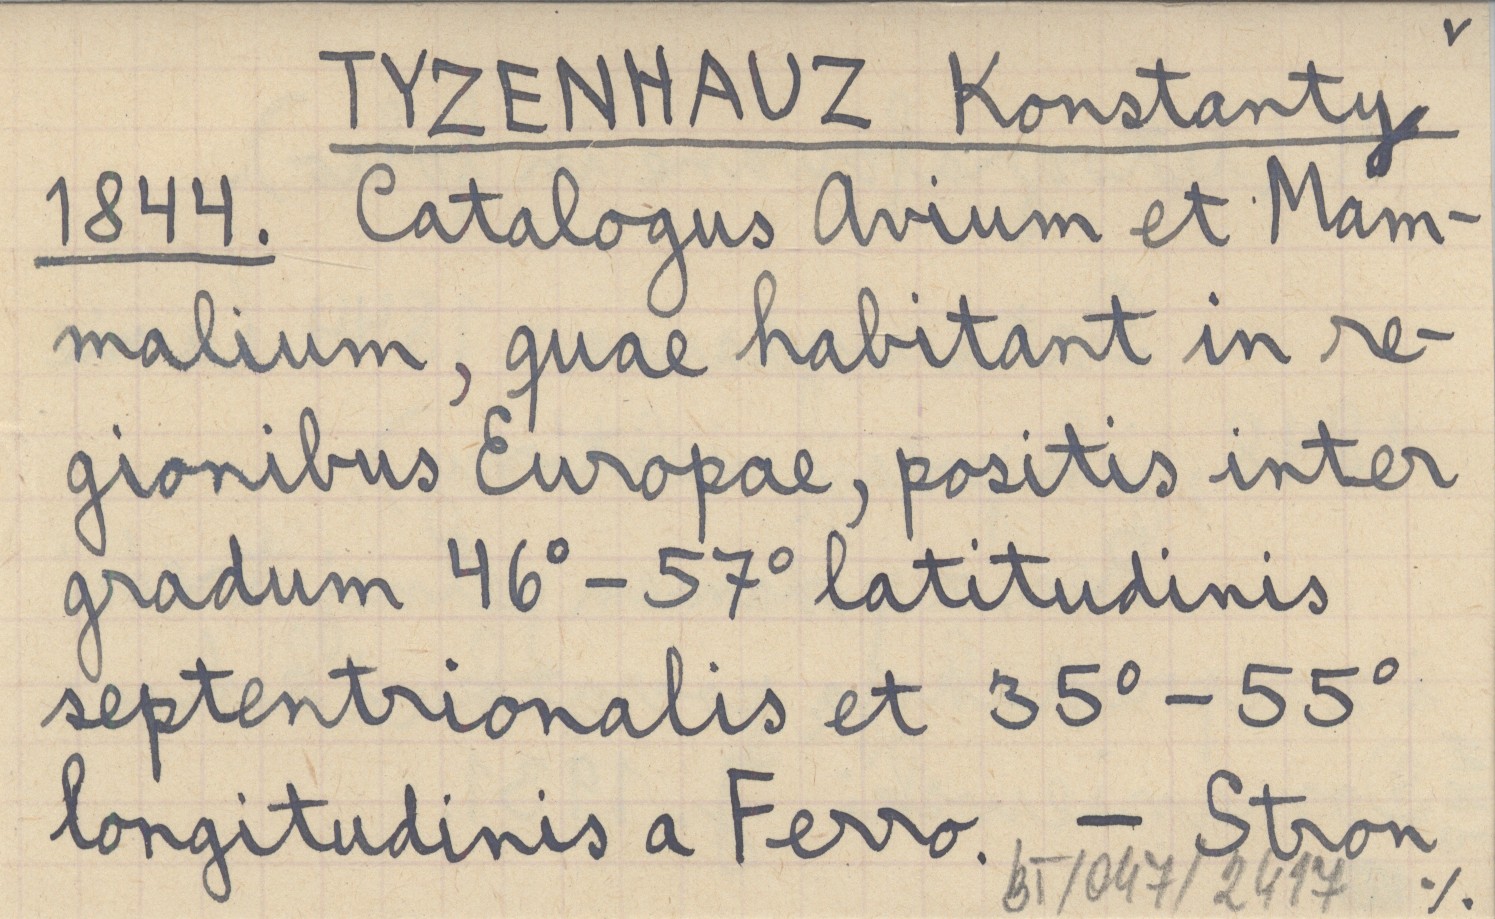 v
TYZENHAUZ Konstanty.
1844. Catalogus Avium et Mam-
malium, quae habitant in re-
gionibus Europae, positis inter
gradum 46° - 57° latitudinis
septentrionalis et 35° - 55°
longitudinis a Ferro. — Stron
BI/047/2417 ./.